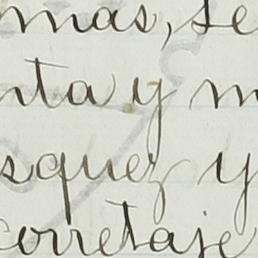 mas, se
nta y m
squez y
corretaje